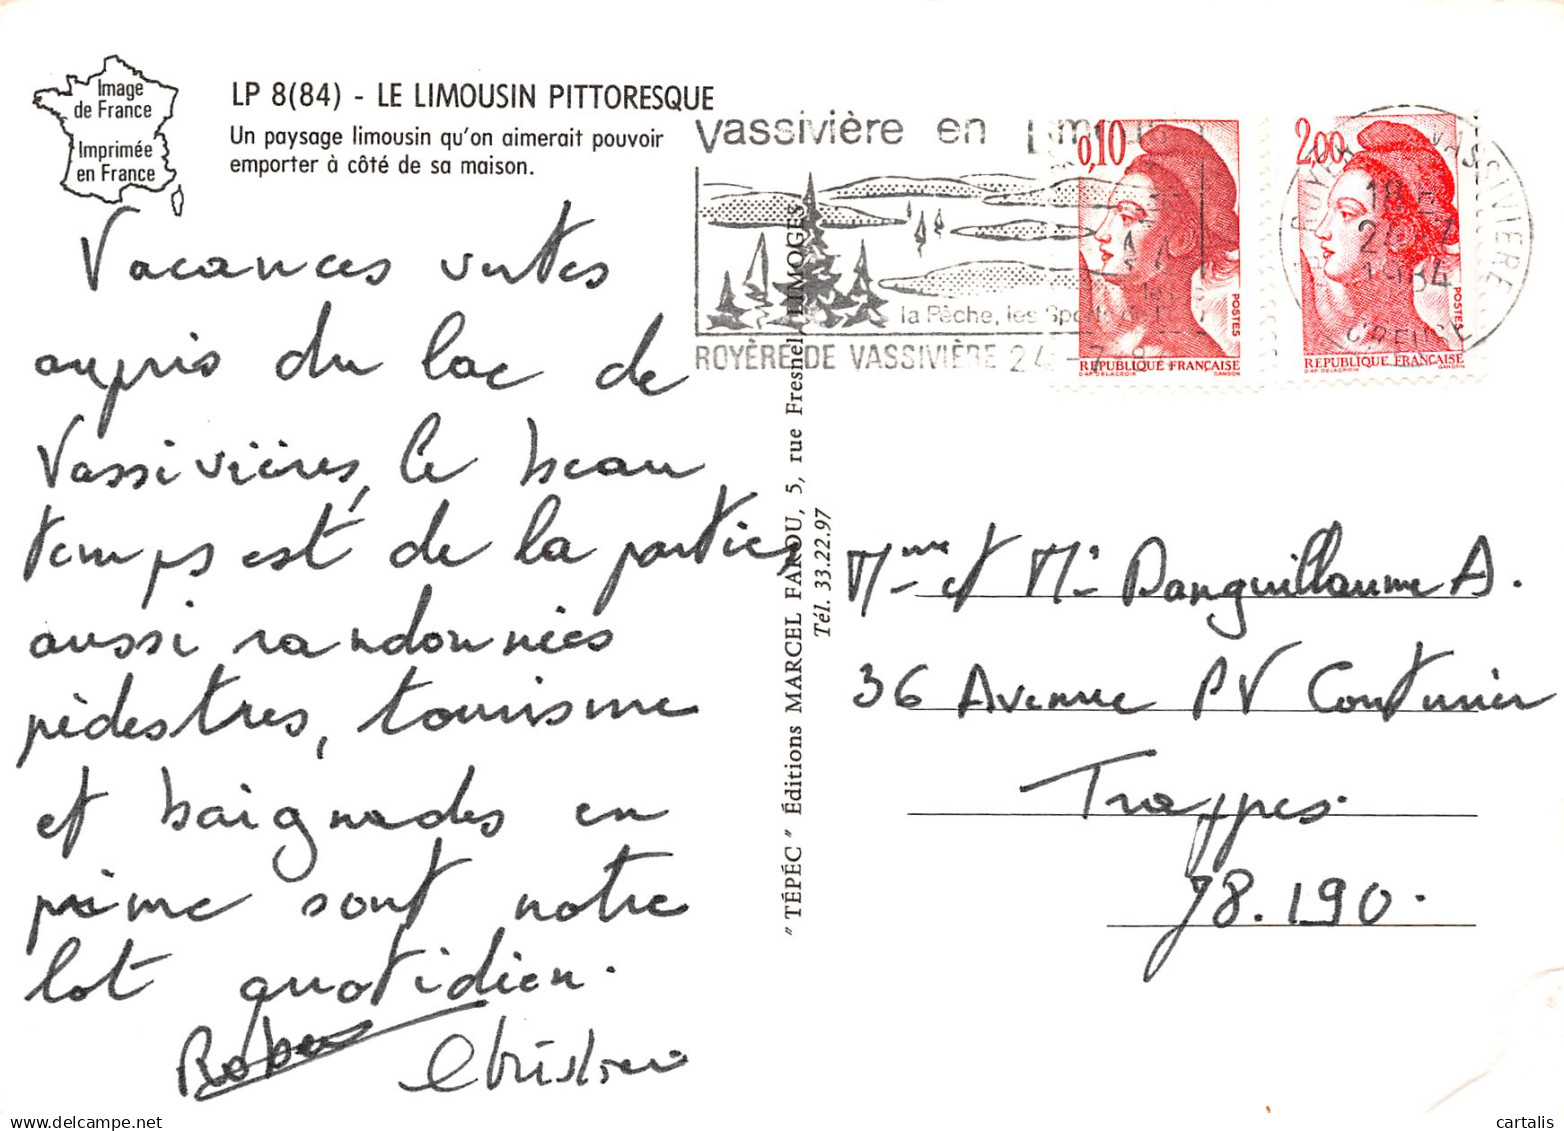 Image
de France
Imprimée
en France
LP 8(84) - LE LIMOUSIN PITTORESQUE
Un paysage limousin qu'on aimerait pouvoir
emporter à côté de sa maison.
Vacances vertes
auprès du lac de
Vassivières, le beau
temps est de la partie,
aussi randonnées
pédestres, tourisme
et baignades en
prime sont notre
lot quotidien.
"TÉPÉC" Éditions MARCEL FAROU, 5, rue Fresnel, LIMOGES
Tél. 33.22.97
Vassivière en
la Pêche, les
ROYÈRE DE VASSIVIÈRE 24-7
0,10
POSTES
REPUBLIQUE FRANÇAISE
D'AP. DELACROIX GANDON
2,00
POSTES
REPUBLIQUE FRANÇAISE
D'AP. DELACROIX GANDON
VASSIVIERE
18
1984
CREUSE
Mme et Mr Danguillaume A.
36 Avenue PV Couturier
Trappes.
78.190.
cartalis